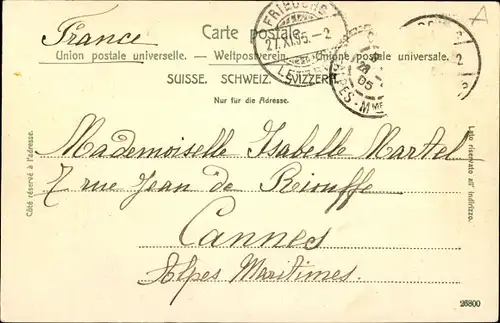 France
Carte postale
Union postale universelle. — Weltpostverein. — Unione postale universale.
SUISSE. SCHWEIZ. SVIZZERA.
Nur für die Adresse.
FRIBOURG
27.XI.05.-2
LETTR
05
Côté réservé à l'adresse.
Mademoiselle Isabelle Martel
7 rue Jean de Riouffe
Cannes
Alpes Maritimes.
Lato riservato all' indirizzo.
26800